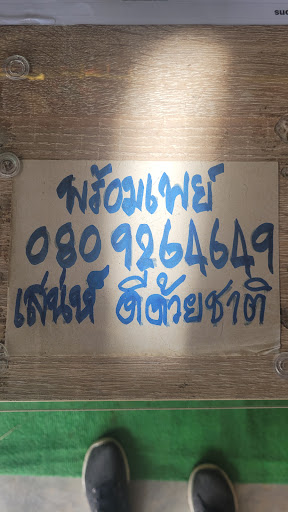 พร้อมเพย์
080 9264649
เสน่ห์ ดีด้วยชาติ